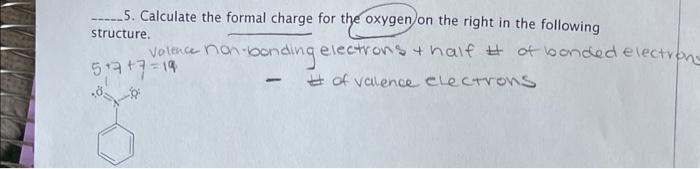 _____5. Calculate the formal charge for the oxygen on the right in the following
structure.
valence non-bonding electrons + half # of bonded electrons
5+7+7=19
- # of valence electrons